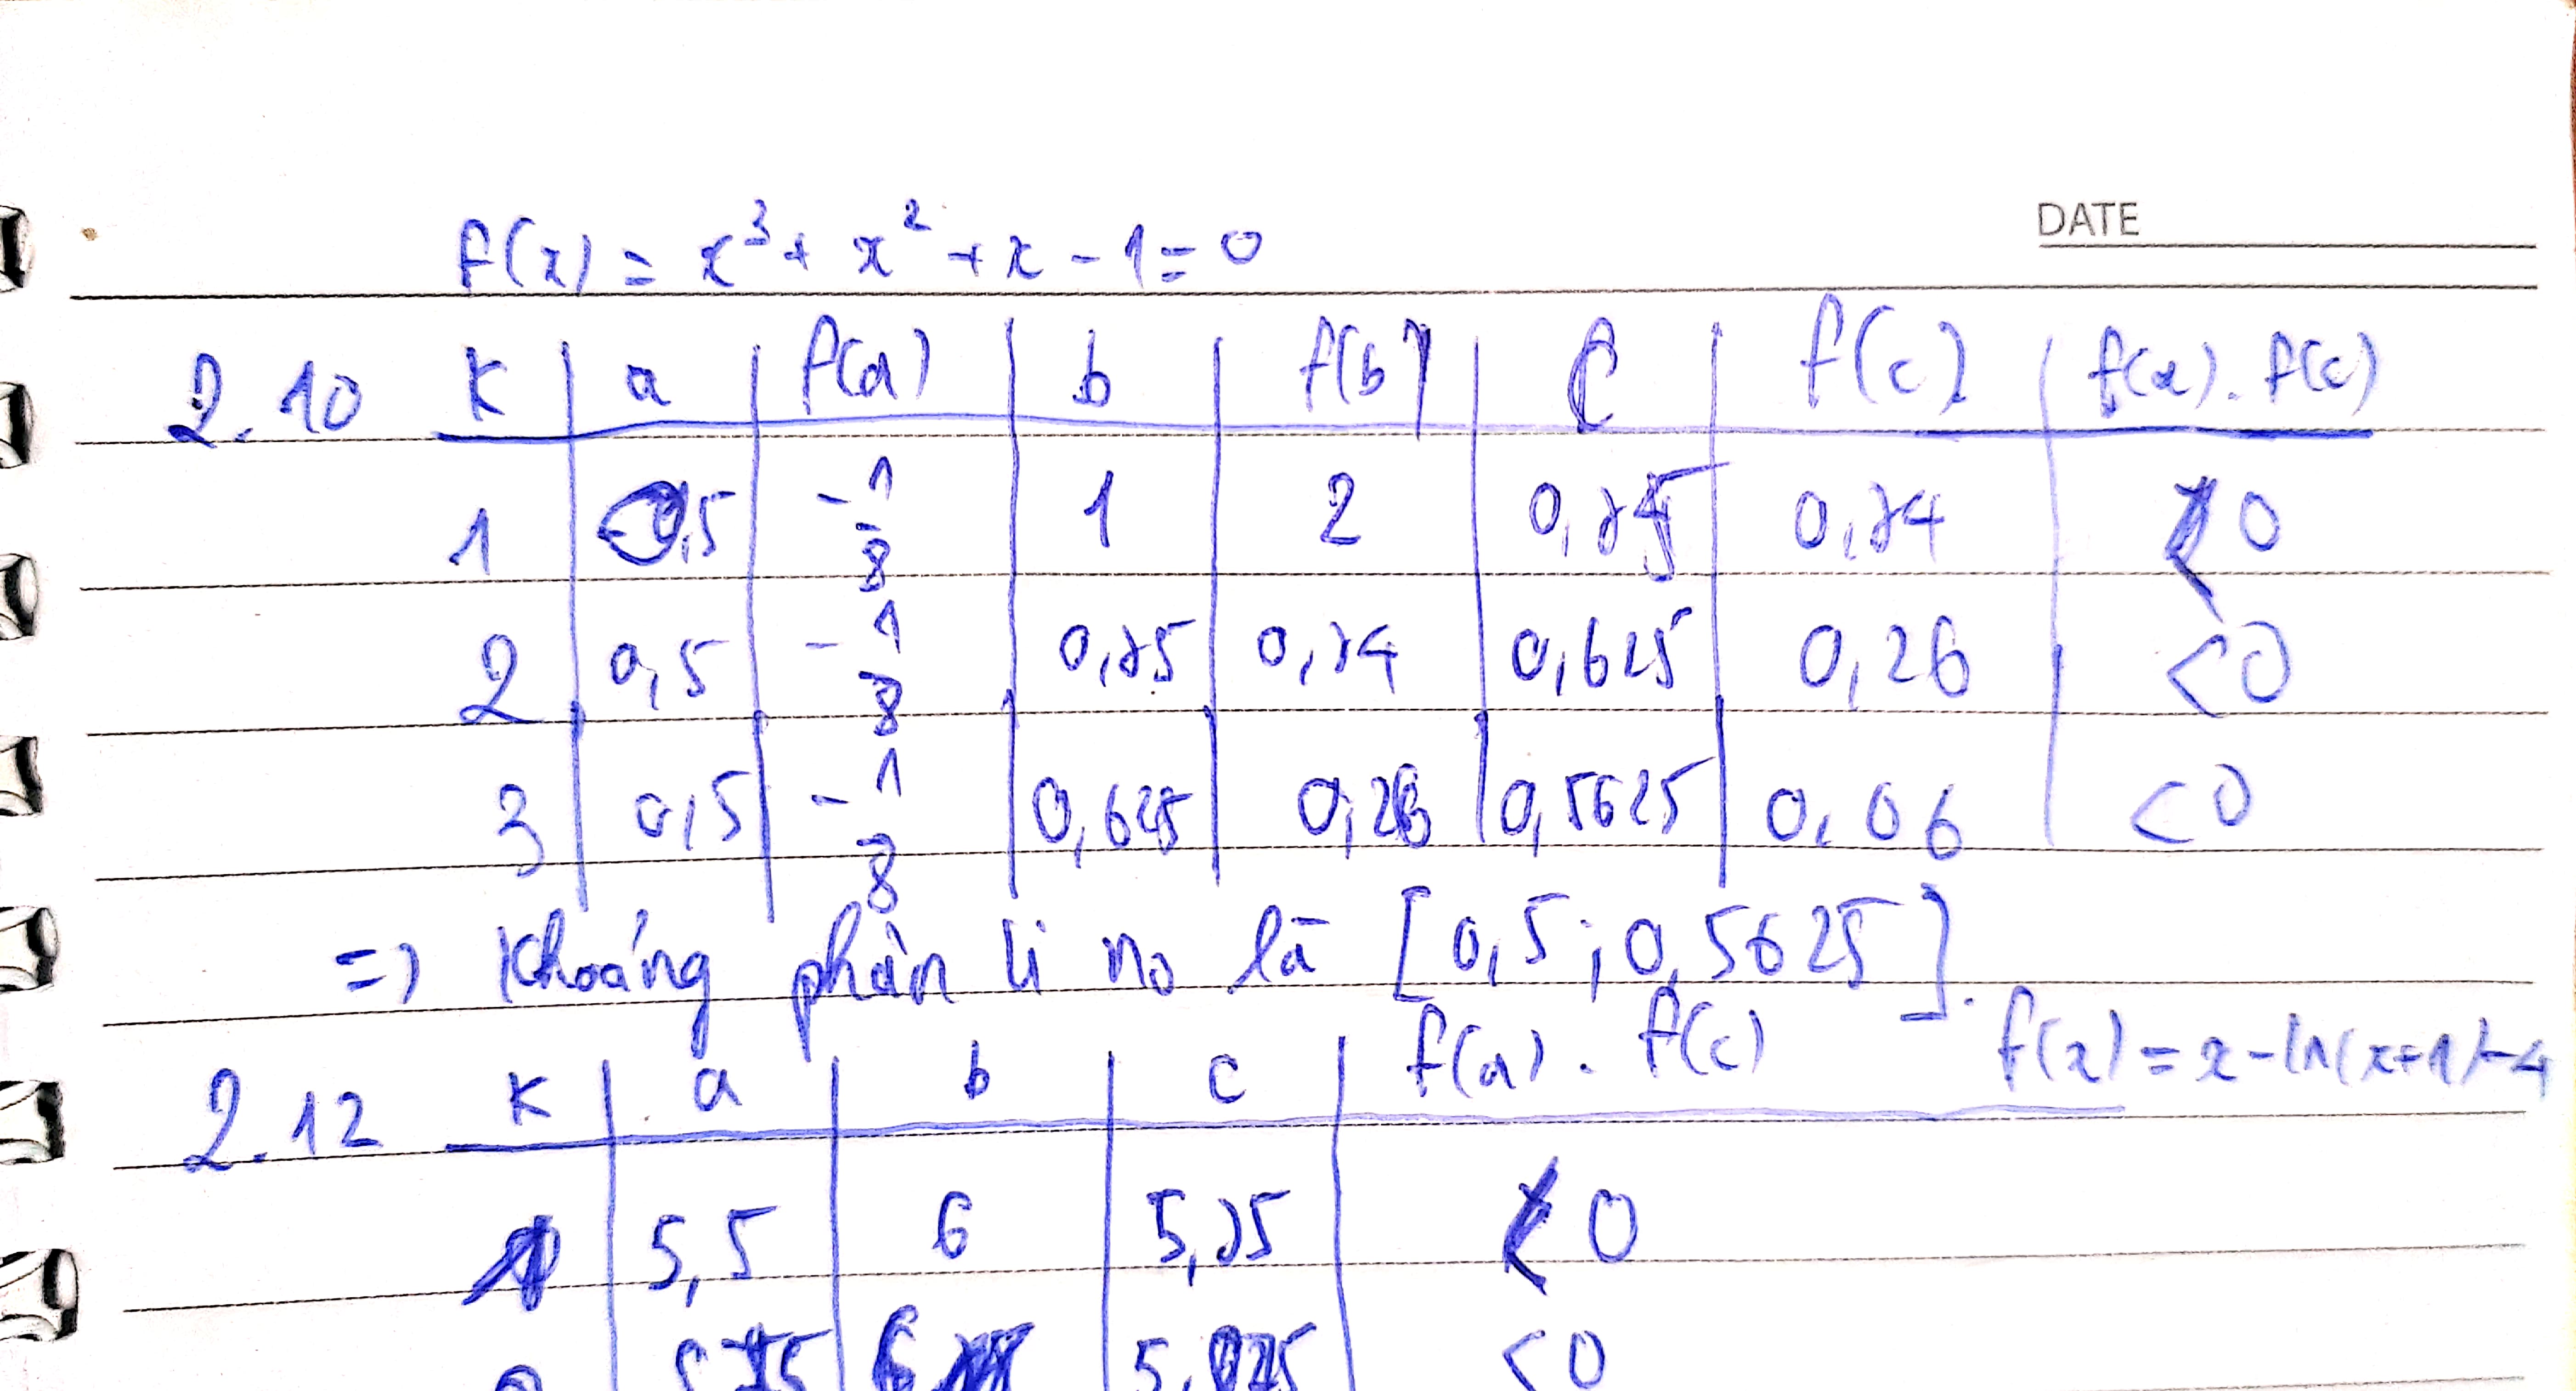 DATE
f(x) = x³ + x² + x - 1 = 0
2.10 K a f(a) b f(b) C f(c) f(a).f(c)
1 0,5 -1/8 1 2 0,75 0,74 <0
2 0,5 -1/8 0,75 0,74 0,625 0,26 <0
3 0,5 -1/8 0,625 0,26 0,5625 0,06 <0
=> Khoảng phân li no là [0,5;0,5625].
f(x) = x - ln(x+1) - 4
2.12 K a b c f(a).f(c)
1 5,5 6 5,75 <0
<0